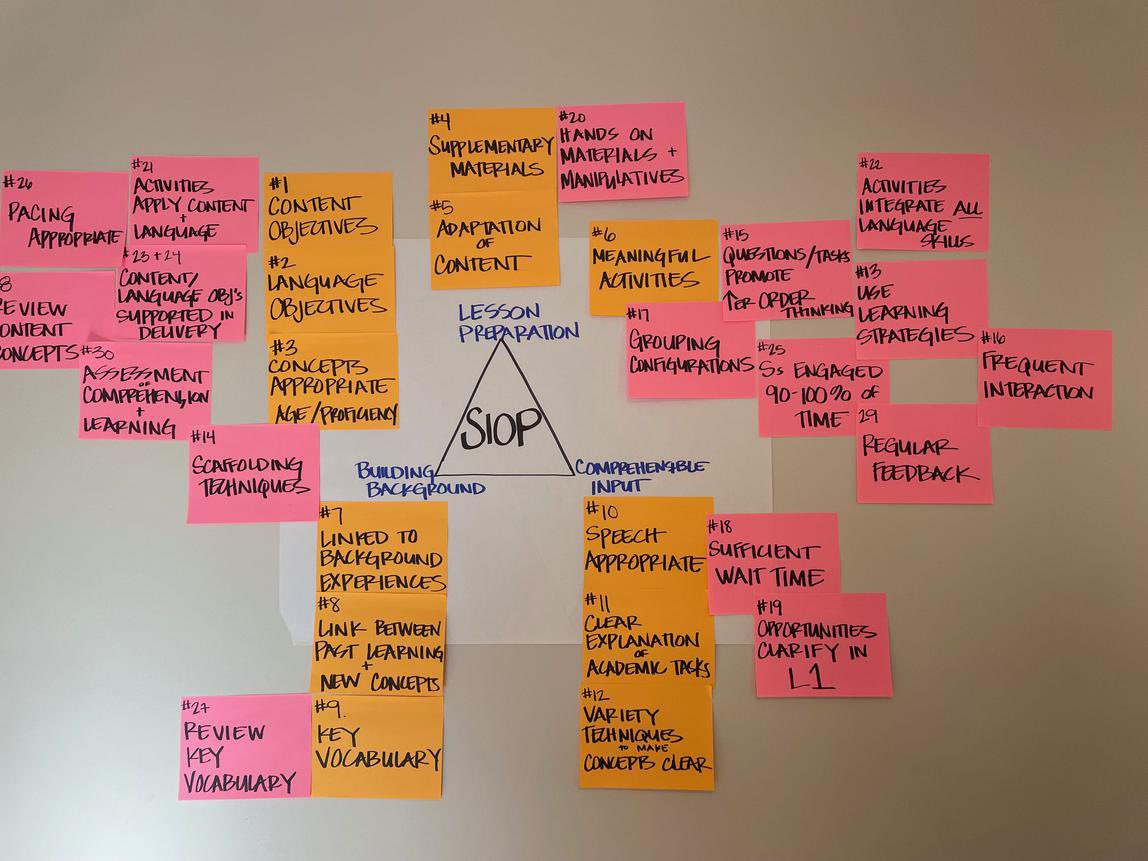 #4
SUPPLEMENTARY
MATERIALS
#20
HANDS ON
MATERIALS +
MANIPULATIVES
#26
PACING
APPROPRIATE
#21
ACTIVITIES
APPLY CONTENT
+
LANGUAGE
#1
CONTENT
OBJECTIVES
#5
ADAPTATION
OF
CONTENT
#6
MEANINGFUL
ACTIVITIES
#15
QUESTIONS/TASKS
PROMOTE
↑ER ORDER
THINKING
#22
ACTIVITIES
INTEGRATE ALL
LANGUAGE
SKILLS
8
EVIEW
ONTENT
ONCEPTS
#23 + 24
CONTENT/
LANGUAGE OBJ's
SUPPORTED IN
DELIVERY
#2
LANGUAGE
OBJECTIVES
#17
GROUPING
CONFIGURATIONS
#13
USE
LEARNING
STRATEGIES
#30
ASSESSMENT
OF
COMPREHENSION
+
LEARNING
#3
CONCEPTS
APPROPRIATE
AGE/PROFICIENCY
LESSON
PREPARATION
SIOP
BUILDING
BACKGROUND
COMPREHENSIBLE
INPUT
#25
Ss ENGAGED
90-100% OF
TIME
#16
FREQUENT
INTERACTION
29
REGULAR
FEEDBACK
#14
SCAFFOLDING
TECHNIQUES
#7
LINKED TO
BACKGROUND
EXPERIENCES
#10
SPEECH
APPROPRIATE
#18
SUFFICIENT
WAIT TIME
#8
LINK BETWEEN
PAST LEARNING
+
NEW CONCEPTS
#11
CLEAR
EXPLANATION
OF
ACADEMIC TASKS
#19
OPPORTUNITIES
CLARIFY IN
L1
#27
REVIEW
KEY
VOCABULARY
#9.
KEY
VOCABULARY
#12
VARIETY
TECHNIQUES
TO MAKE
CONCEPTS CLEAR